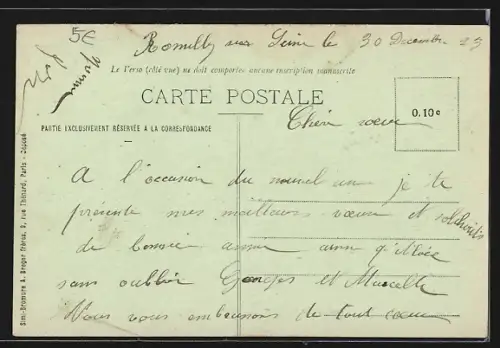 5€
Romilly sur Seine le 30 Decembre 23
Le Verso (côté vue) ne doit comporter aucune inscription manuscrite
CARTE POSTALE
0.10c
Chère sœur
PARTIE EXCLUSIVEMENT RÉSERVÉE A LA CORRESPONDANCE
A l'occasion du nouvel an je te
présente mes meilleurs vœux et souhaits
de bonne année ainsi qu'
sans oublier Georges et Marcelle
Nous vous embrassons de tout cœur
Simi-Bromure A. Breger frères, 9, rue Thénard, Paris - Déposé